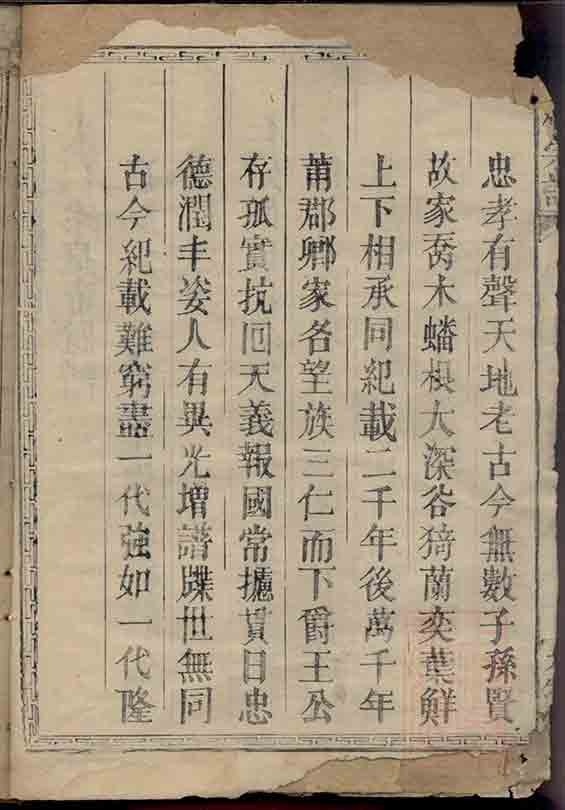 忠孝有聲天地老古今無數子孫賢
故家喬木蟠根大深谷猗蘭奕葉鮮
上下相承同紀載二千年後萬千年
莆郡鄉家各望族三仁而下爵王公
存孤實抗回天義報國常攄貫日忠
德潤丰姿人有異光增譜牒世無同
古今紀載難窮盡一代強如一代隆